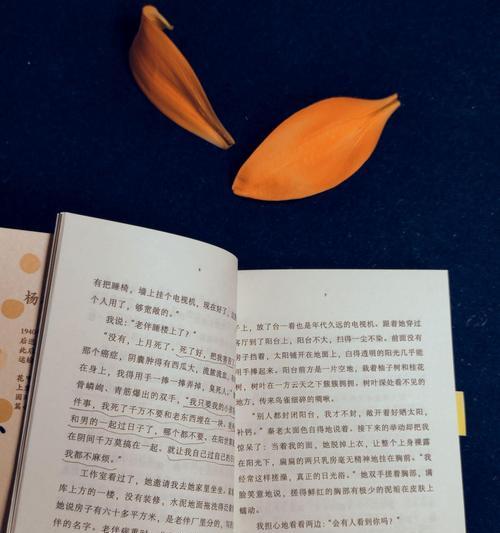 杨
1940
后
此后
有把睡椅，墙上挂个电视机，现在好了，
个人用了，够宽敞的。”
我说：“老伴睡楼上了？”
“没有，上月死了。死了好，把我害苦
那个癌症，阴囊肿得有西瓜大，流脓流血，
在身上，我得用手一捧一捧弄掉，臭死人
骨嶙峋、青筋爆出的双手，“我只要我的小孩
件事，我死了千万不要和老东西埋在一块，
和男的一起过日子了，哪个都不要。在阳世
在阴间千万莫搞在一起。就让我自己过自己
我都不麻烦。”
工作室看过了，她邀请我去她家里坐坐，
库上方的一楼，没有装修，水泥地面拖得
她说房子有六十多平方米，是老伴厂里分的，
件的名字。老伴病重时
子上，放了台一看也是年代久远的电视机。跟着她穿过
客厅到了阳台上，阳台不大，扫得一尘不染。前面没有
房子挡着，太阳铺开在地面上，白得透明的阳光几乎能
用手捧起来。阳台前方是一片空地，栽着柚子树和桂花
树，树叶在一方云天之下簇簇拥拥，树叶深处看不见的
地方，传来鸟雀细碎的啁啾。
“别人都封闭阳台，我才不封，敞开着好晒太阳，
补钙。”秦老太面色自得地说着。接下来的举动却把我
惊呆了：当着我的面，她脱掉上衣，让整个上身裸露
在阳光下，扁扁的两只乳房毫无精神地挂在胸前。“我
经常这样搓搓，真正的日光浴。”她双手搓着胸部，满
脸笑意地说，搓得鲜红的胸部有极少的泥垢在皮肤上
蠕动。
我担心地看着两边：“会有人看到你吗？”